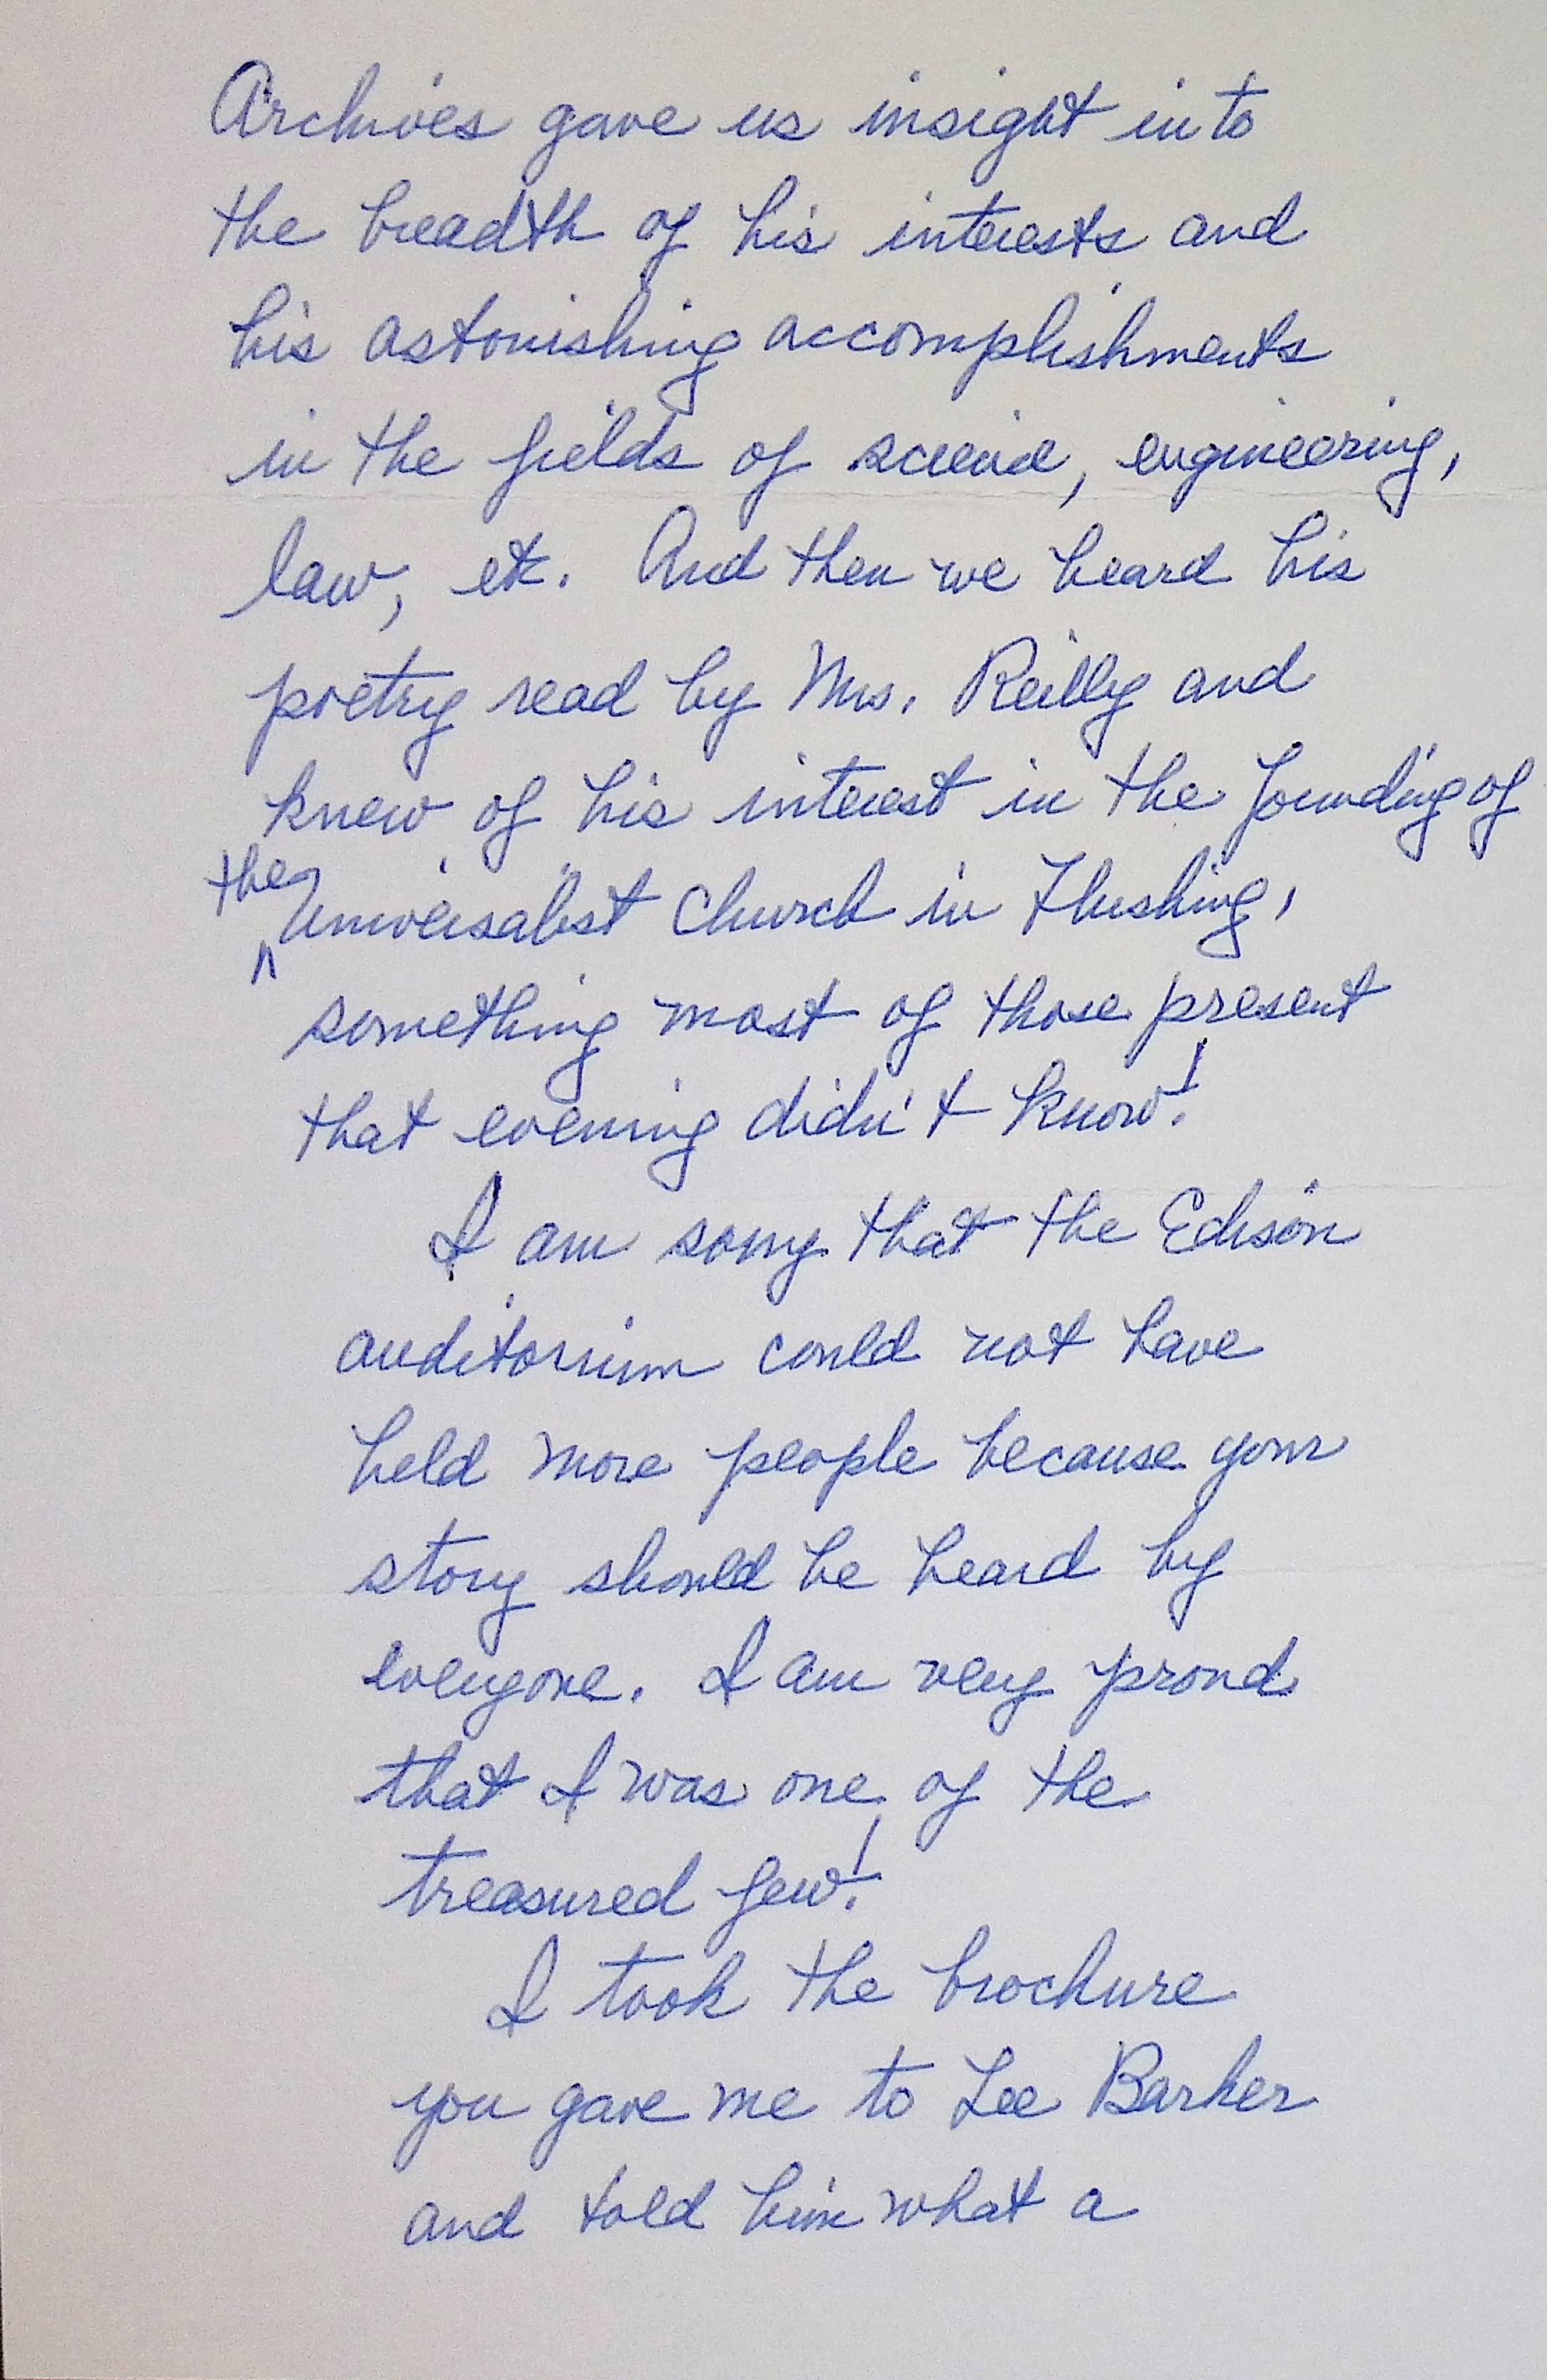 Archives gave us insight into
the breadth of his interests and
his astonishing accomplishments
in the fields of science, engineering,
law, etc. And then we heard his
poetry read by Mrs. Reilly and
knew of his interest in the founding of
the Universalist Church in Flushing,
something most of those present
that evening didn't know!
I am sorry that the Edison
auditorium could not have
held more people because your
story should be heard by
everyone. I am very proud
that I was one of the
treasured few!
I took the brochure
you gave me to Lee Barker
and told him what a